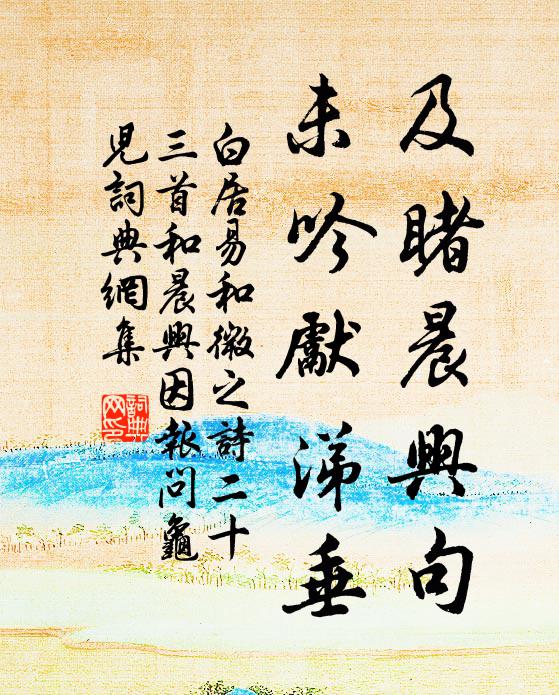 及睹晨興句
未吟獻涕垂
白居易和微之詩二十
三首和晨興因報問龜
兒詞典網集
詞典网印